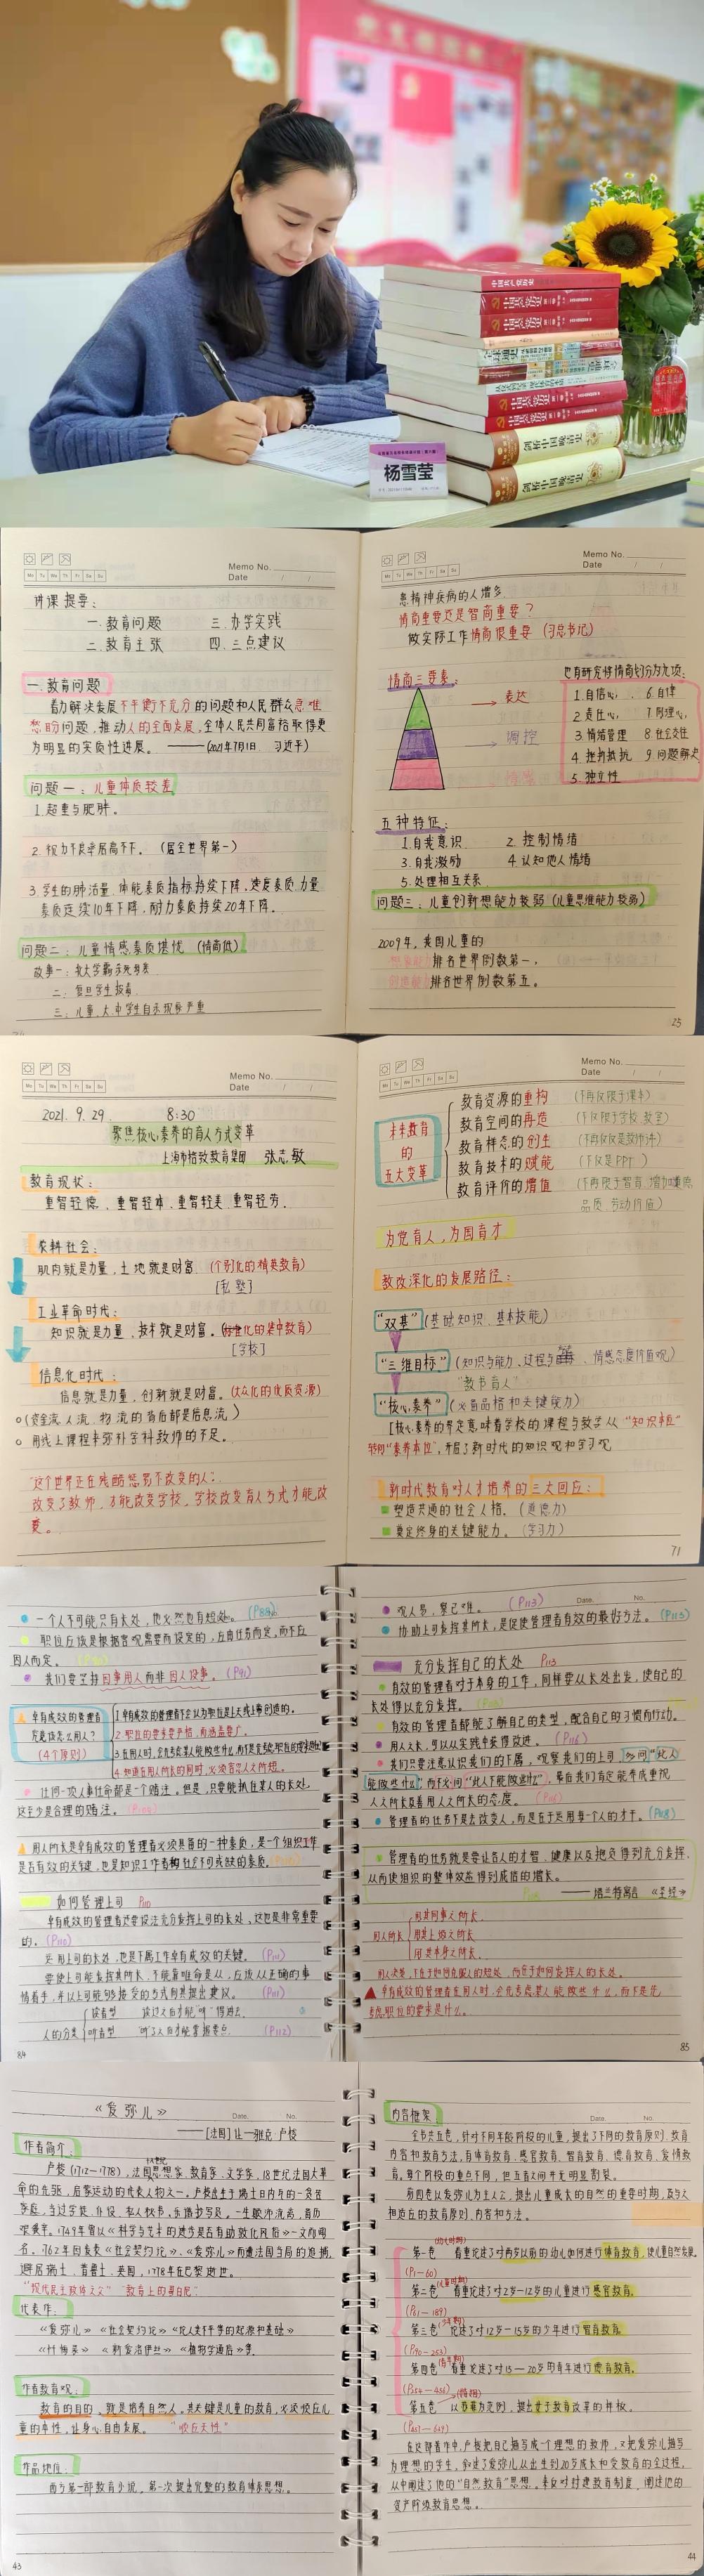 中国共产党历史
中国共产党历史
中国共产党历史
全球通史
中国共产党历史
中国共产党历史
剑桥中国晚清史
剑桥中国晚清史
杨雪莹
Memo No.
Mo Tu We Th Fr Sa Su
Date / /
讲课提要：
一.教育问题 三.办学实践
二.教育主张 四.三点建议
一.教育问题
着力解决发展不平衡不充分的问题和人民群众急难
愁盼问题，推动人的全面发展，全体人民共同富裕取得更
为明显的实质性进展。——(2021年7月1日 习近平)
问题一：儿童体质较差
1.超重与肥胖。
2.视力不良率居高不下。（居全世界第一）
3.学生的肺活量、体能素质指标持续下降，速度素质力量
素质连续10年下降，耐力素质持续20年下降。
问题二：儿童情感素质堪忧（情商低）
故事一：北大学霸杀死母亲
二：复旦学生投毒
三：儿童、大中学生自杀现象严重
Memo No.
Mo Tu We Th Fr Sa Su
Date / /
患精神疾病的人增多.
情商重要还是智商重要？
做实际工作情商很重要（习总书记）
情商三要素：
表达
调控
也有研究将情商划分为九项：
1.自信心， 6.自律
2.责任心， 7.同理心，
3.情绪管理 8.社会交往
4.挫折抵抗 9.问题解决
5.独立性
五种特征：
1.自我意识 2.控制情绪
3.自我激励 4.认知他人情绪
5.处理相互关系
问题三：儿童创新想能力较弱（儿童思维能力较弱）
2009年，我国儿童的
想象能力排名世界倒数第一，
创造能力排名世界倒数第五。
25
Memo No.
Mo Tu We Th Fr Sa Su
Date / /
2021.9.29. 8:30
聚焦核心素养的育人方式变革
上海市格致教育集团 张志敏
教育现状：
重智轻德、重智轻体、重智轻美、重智轻劳.
农耕社会：
肌肉就是力量，土地就是财富.（个别化的精英教育）
[私塾]
工业革命时代：
知识就是力量，技术就是财富。（标准化的集中教育）
[学校]
信息化时代：
信息就是力量，创新就是财富.（大众化的优质资源）
（资金流 人流 物流的背后都是信息流）
用线上课程来弥补学科教师的不足。
“这个世界正在残酷惩罚不改变的人：
改变了教师，才能改变学校。学校改变育人方式才能改
变。
Memo No.
Mo Tu We Th Fr Sa Su
Date / /
未来教育
的
五大变革
教育资源的重构 （不再仅限于课本）
教育空间的再造 （不仅限于学校、教室）
教育样态的创生 （不再仅仅是教师讲）
教育技术的赋能 （不仅是PPt ）
教育评价的增值 （不再限于智育，增加道德
品质、劳动价值）
为党育人，为国育才
教改深化的发展路径：
“双基”（基础知识、基本技能）
“三维目标”（知识与能力、过程与方法、情感态度价值观）
“教书育人”
“核心素养”（必备品格和关键能力）
[核心素养的界定意味着学校的课程与教学从“知识本位”
转向“素养本位”，开启了新时代的知识观和学习观
新时代教育对人才培养的三大回应：
塑造共通的社会人格。（道德力）
奠定终身的关键能力。（学习力）
71
一个人不可能只有长处，他必然也有短处。（P88）
职位应该是根据客观需要而设定的，应由任务而定，而不应
因人而定。（P90）
我们要坚持因事用人而非因人设事。（P91）
卓有成效的管理者
究竟该怎么用人？
（4个原则）
1.卓有成效的管理者不会认为职位是上天或上帝创造的。
2.职位的要求要严格，而涵盖要广。
3.在用人时，会先考虑某人能做些什么，而不是先考虑职位的要求是什么
4.知道在用人所长的同时，必须容忍人之所短。
任何一项人事任命都是一个赌注。但是，只要能抓住某人的长处，
这至少是合理的赌注。（P104）
用人所长是卓有成效的管理者必须具备的一种素质，是一个组织工作
是否有效的关键，也是知识工作者和社会不可或缺的素质。
如何管理上司 P110
卓有成效的管理者还要设法充分发挥上司的长处，这也是非常重要
的。（P110）
运用上司的长处，也是下属工作卓有成效的关键。（P111）
要使上司能发挥其所长，不能靠唯命是从，应该从正确的事
情着手，并以上司能够接受的方式向其提出建议。（P111）
人的分类
读者型 读过之后才能“听”得进去.
听者型 听了之后才能掌握要点. （P112）
84
Date. No.
观人易，察己难。（P113）
协助上司发挥其所长，是促使管理者有效的最好方法。（P113）
充分发挥自己的长处 P113
有效的管理者对于本身的工作，同样要从长处出发，使自己的
长处得以充分发挥。
有效的管理者都能了解自己的类型，配合自己的习惯而行动。
用人之长，可以从实践中获得改进。（P116）
我们只要注意认识我们的下属，观察我们的上司，多问“此人
能做些什么”，而不必问“此人不能做些什么”，最后我们肯定能养成重视
人之所长及善用人之所长的态度。
管理者的任务不是去改变人，而是在于运用每个人的才干。（P118）
管理者的任务就是要让各人的才智、健康以及抱负得到充分发挥，
从而使组织的整体效益得到成倍的增长。
——塔兰特寓言 《圣经》
用人所长
用其同事之所长
用其上级之所长
用其本身之所长
用人决策，不在于如何克服人的短处，而在于如何发挥人的长处。
卓有成效的管理者在用人时，会先考虑某人能做些什么，而不是先
考虑职位的要求是什么。
85
《爱弥儿》
Date. No.
——[法国]让-雅克·卢梭
作者简介：
卢梭（1712—1778），法国思想家、教育家、文学家，18世纪法国大革
命的先驱，启蒙运动的代表人物之一。卢梭出生于瑞士日内瓦的一个贫苦
家庭，当过学徒、仆役、私人秘书、乐谱抄写员。一生颠沛流离，备历
艰辛。1749年曾以《科学与艺术的进步是否有助敦化风俗》一文而闻
名。1762年因发表《社会契约论》、《爱弥儿》而遭法国当局的追捕，
避居瑞士、普鲁士、英国，1778年在巴黎逝世。
代表作：
《爱弥儿》《社会契约论》《论人类不平等的起源和基础》
《忏悔录》《新爱洛伊丝》《植物学通信》等.
作者教育观：
教育的目的，就是培养自然人。其关键是儿童的教育，必须顺应儿
童的本性，让身心自由发展。“顺应天性”
作品地位：
西方第一部教育小说，第一次提出完整的教育体系思想。
43
内容框架
Date. No.
全书共五卷，针对不同年龄阶段的儿童，提出了不同的教育原则、教育
内容和教育方法，有体育教育、感官教育、智育教育、德育教育、爱情教
育，每个阶段的重点不同，但五者之间并无明显割裂。
前四卷以爱弥儿为主人公，提出儿童成长的自然的重要时期，及与之
相适应的教育原则、内容和方法。
第一卷 着重论述了对两岁以前的幼儿如何进行体育教育，使儿童自然发展。
（P1—60）
第二卷 着重论述了对2岁—12岁的儿童进行感官教育。
（P61—189）
第三卷 论述了对12岁—15岁的少年进行智育教育。
（P190—253）
第四卷 着重论述了对15—20岁的青年进行德育教育。
（P254—456）
第五卷 以苏菲为范例，提出女子教育改革的神权。
在这部著作中，卢梭把自己描写成一个理想的教师，又把爱弥儿描写
为理想的学生，叙述了爱弥儿从出生到20岁成长和受教育的全过程，
从中阐述了他的“自然教育”思想。来反对封建教育制度，阐述他的
资产阶级教育思想。
44